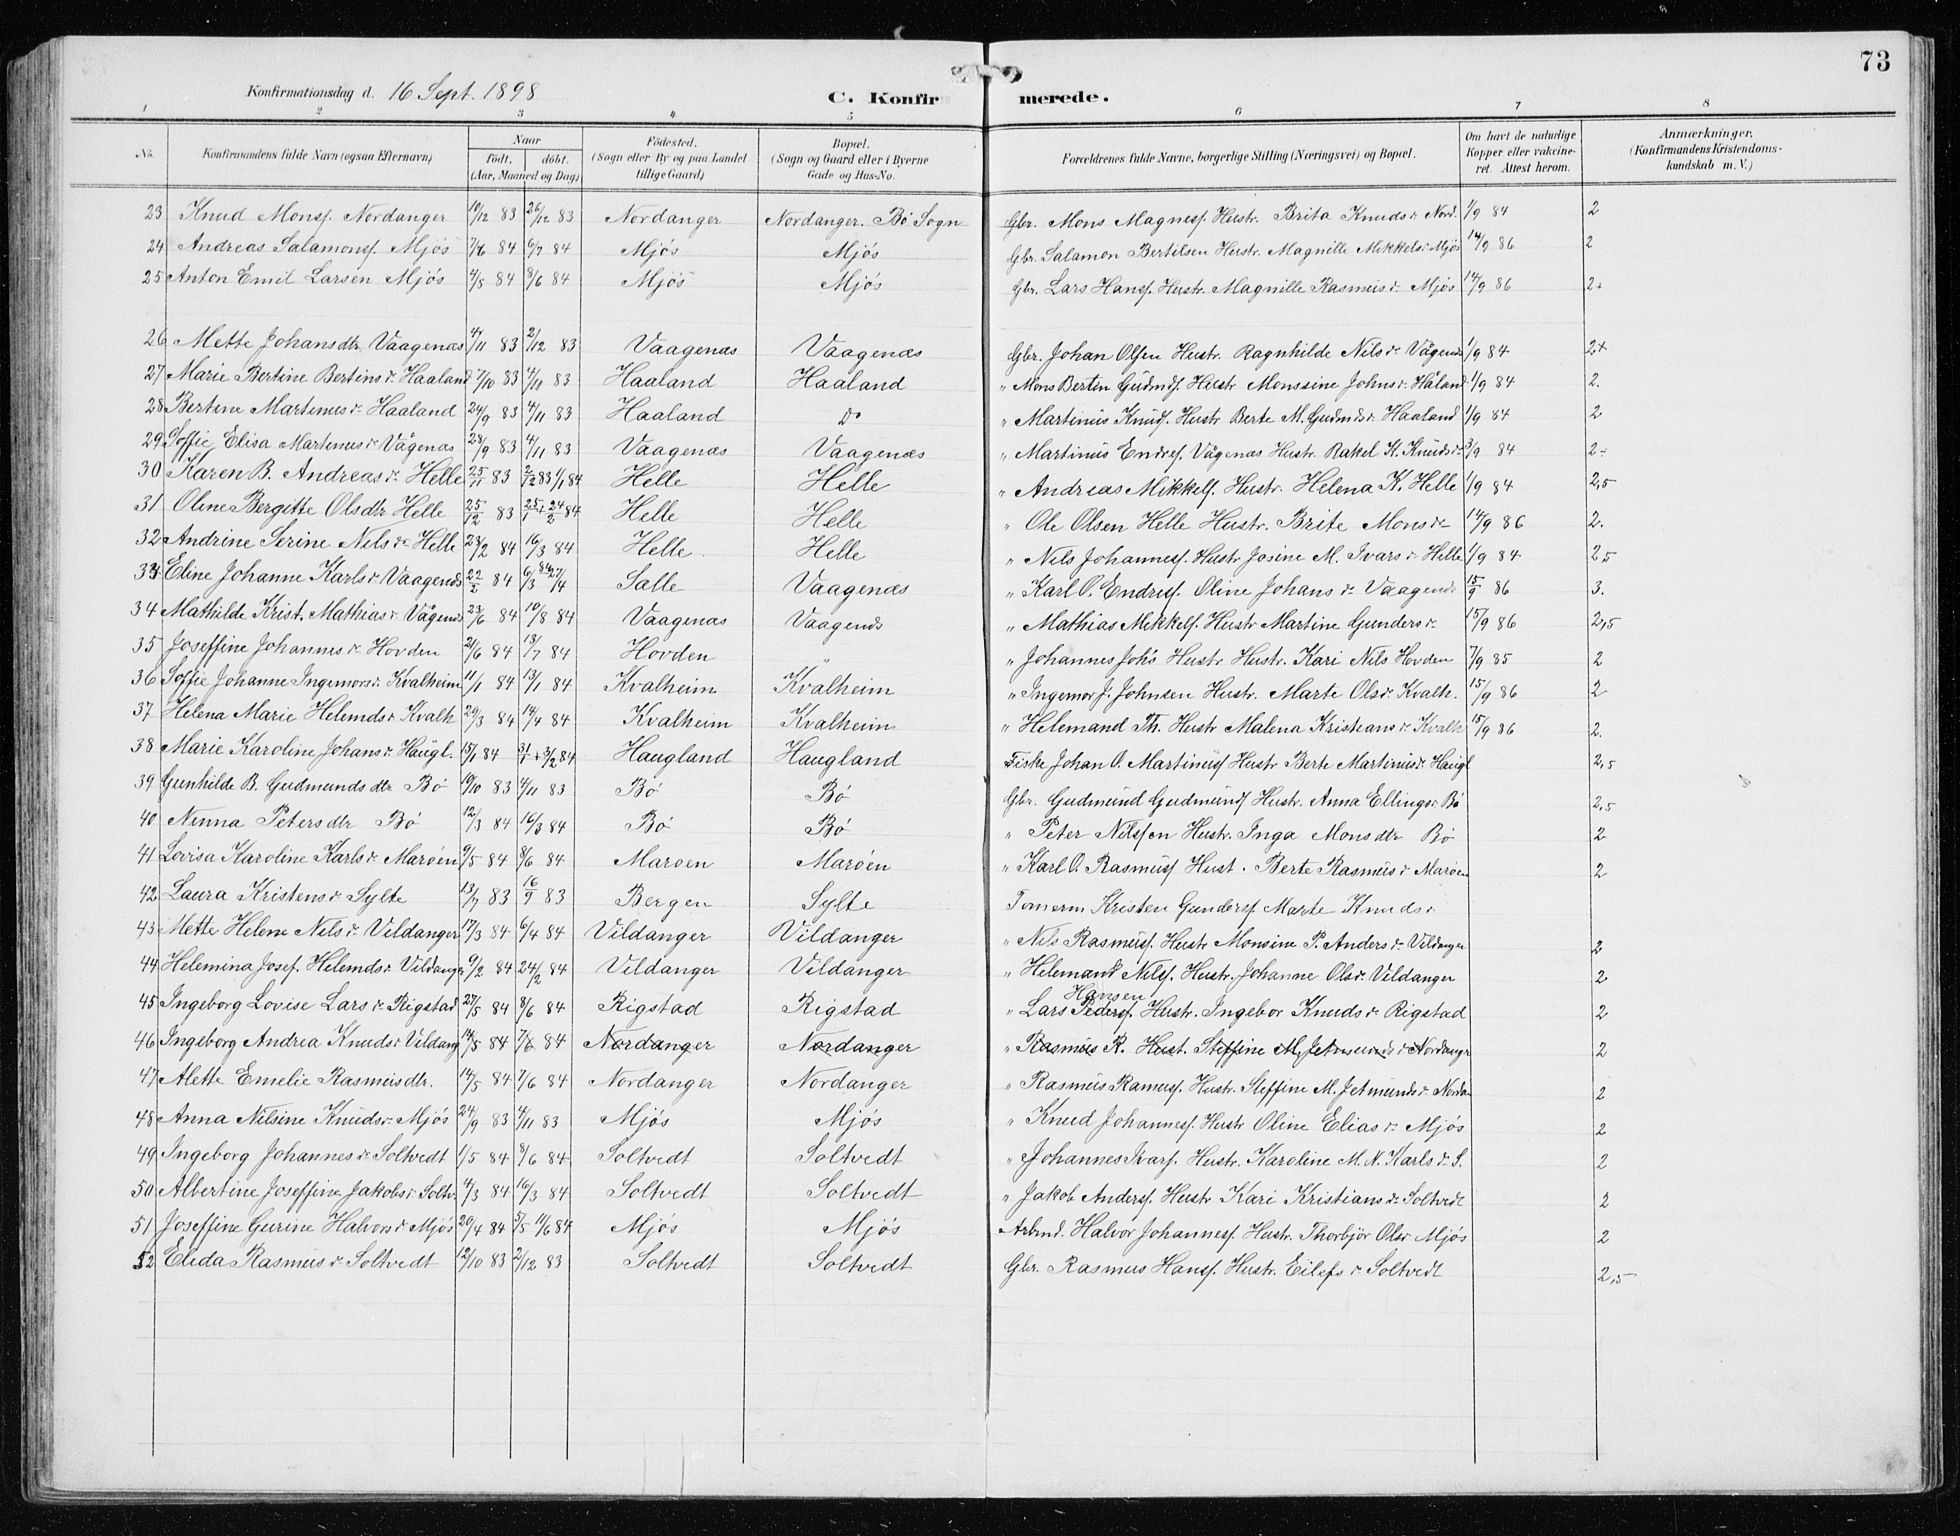 73
Konfirmationsdag d. 16 Sept. 1898
C. Konfirmerede.
1 2 3 4 5 6 7 8
No. Konfirmandens fulde Navn (ogsaa Efternavn) Naar født. døbt. (Aar, Maaned og Dag) Fødested. (Sogn eller By og paa Landet tillige Gaard) Bopæl. (Sogn og Gaard eller i Byerne Gade og Hus-No. Forældrenes fulde Navne, borgerlige Stilling (Næringsvei) og Bopæl. Om havt de naturlige Kopper eller vakcineret. Attest herom. Anmærkninger. (Konfirmandens Kristendomskundskab m. V.)
23 Knud Monsf. Nordanger 19/12 83 26/12 83 Nordanger Nordanger. Bø Sogn Gbr. Mons Magnesf. Hustr. Brita Knuds d. Nord. 1/9 84 2
24 Andreas Salamonsf. Mjøs 7/6 84 6/7 84 Mjøs Mjøs Gbr. Salamon Bertilsen Hustr. Magnille Mikkels d. Mjøs 14/9 86 2
25 Anton Emil Larsen Mjøs 4/5 84 8/6 84 Mjøs Mjøs Gbr. Lars Hansf. Hustr. Magnille Rasmus d. Mjøs 14/9 86 2+
26 Mette Johansdtr Vaagenæs 4/11 83 2/12 83 Vaagenæs Vaagenæs Gbr. Johan Olsen Hustr. Ragnhilde Nils d. Vågenæs 1/9 84 2+
27 Marie Bertine Bertins d. Haaland 7/10 83 4/11 83 Haaland Haaland " Mons Bertin Gudmdf. Hustr Monssine Johns d. Håland 1/9 84 2.
28 Bertine Martenus d. Haaland 24/9 83 4/11 83 Haaland do " Martinus Knudf. Hustr Berte M. Gudmds d. Haaland 1/9 84 2
29 Soffie Elisa Martenus d. Vågenæs 28/9 83 4/11 83 Vaagenæs Vaagenæs " Martinus Endref. Vågenæs Hustr. Rakel K. Knuds d. 3/9 84 2-
30 Karen B. Andreas d. Helle 25/11 83 2/12 83 1/1 84 Helle Helle " Andreas Mikkelf. Hustr. Helena K. Helle 1/9 84 2,5
31 Oline Bergitte Olsdtr Helle 25/12 83 25/1 + 24/2 84 Helle Helle " Ole Olsen Helle Hustr. Brite Mons d. 14/9 86 2.
32 Andrine Serine Nils d. Helle 23/2 84 16/3 84 Helle Helle " Nils Johannesf. Hustr Josine M. Ivars d. Helle 1/9 84 2,5
33 Eline Johanne Karls d. Vaagenæs 22/2 84 6/3 84 27/4 Salle Vaagenæs " Karl O. Endresf. Oline Johans d. Vaagenæs 15/9 86 3.
34 Mathilde Krist. Mathias d. Vågenæs 23/6 84 10/8 84 Vaagenæs Vaagenæs " Mathias Mikkelf. Hustr Martine Gunders d. 15/9 86 2,5
35 Joseffine Johannes d. Hovden 21/6 84 13/7 84 Hovden " " Johannes Joh's Hustr Hustr. Kari Nils Hovden 7/9 85 2
36 Soffie Johanne Ingemors d. Kvalheim 11/1 84 13/1 84 Kvalheim Kvalheim " Ingemor J. Johnsen Hustr. Marte Ols d. Kvalh. 15/9 86 2
37 Helena Marie Helemds d. Kvalh 29/3 84 14/4 84 Kvalheim Kvalheim " Helemand Th. Hustr Malena Kristians d. Kvalh 15/9 86 2.
38 Marie Karoline Johans d. Haugl. 15/1 84 31/1 + 3/2 84 Haugland Haugland Fiske Johan O. Martinusf Hustr Berte Martinus d. Haugl 2,5
39 Gunhilde B. Gudmunds dtr Bø 19/10 83 4/11 83 Bø Bø Gbr. Gudmund Gudmundf Hustr. Anna Ellings d. Bø 2,5
40 Ninna Petersdtr Bø 12/3 84 16/3 84 Bø Bø " Peter Nilssen Hustr. Inga Monsdtr Bø 2
41 Lovisa Karoline Karls d. Marøen 9/5 84 8/6 84 Marøen Marøen " Karl O. Rasmusf Hust. Berte Rasmus d. Marøen 2
42 Laura Kristens d. Sylte 13/7 83 16/9 83 Bergen Sylte Tømerm Kristen Gundersf Marte Knuds d.
43 Mette Helene Nils d. Vildanger 17/3 84 6/4 84 Vildanger Vildanger " Nils Rasmusf. Hustr Monsine P. Anders d. Vildanger 2
44 Helemina Josef. Helemds d. Vildanger 9/2 84 24/2 84 Vildanger Vildanger " Helemand Nilsf. Hustr. Johanne Ols d. Vildanger 2
Hansen
45 Ingeborg Lovise Lars d. Rigstad 27/5 84 8/6 84 Rigstad Rigstad " Lars Pedersf. Hustr. Ingebor Knuds d. Rigstad 2
46 Ingeborg Andrea Knuds d. Vildang 14/5 84 7/6 84 Nordanger Nordanger " Rasmus R. Hust. Steffine M. Jetmunds d. Nordangr 2
47 Alette Emelie Rasmusdtr. 14/5 84 7/6 84 Nordanger Nordanger " Rasmus Ramusf. Hustr. Steffine M. Jetmunds d. Norda 2
48 Anna Nilsine Knuds d. Mjøs 24/9 83 4/11 83 Mjøs Mjøs " Knud Johannesf. Hustr Oline Elias d. Mjøs 2
49 Ingeborg Johannes d. Soltvedt 1/5 84 8/6 84 Soltvedt Soltvedt " Johannes Ivarf. Hustr. Karoline M. N. Karls d. S. 2
50 Albertine Joseffine Jakobs d. Soltv. 4/3 84 16/3 84 Soltvedt Soltvedt " Jakob Andersf. Hustr Kari Kristians d. Soltvedt 2
51 Joseffine Gurine Halvors d. Mjøs 20/4 84 5/5 11/6 84 Mjøs Mjøs Arbmd. Halvor Johannesf. Hustr. Thorbjør Ols d. Mjøs 2
52 Elida Rasmus d. Soltvedt 12/10 83 2/12 83 Soltvedt Soltvedt Gbr. Rasmus Hansf. Hustr. Eilefs d. Soltvedt 2,5